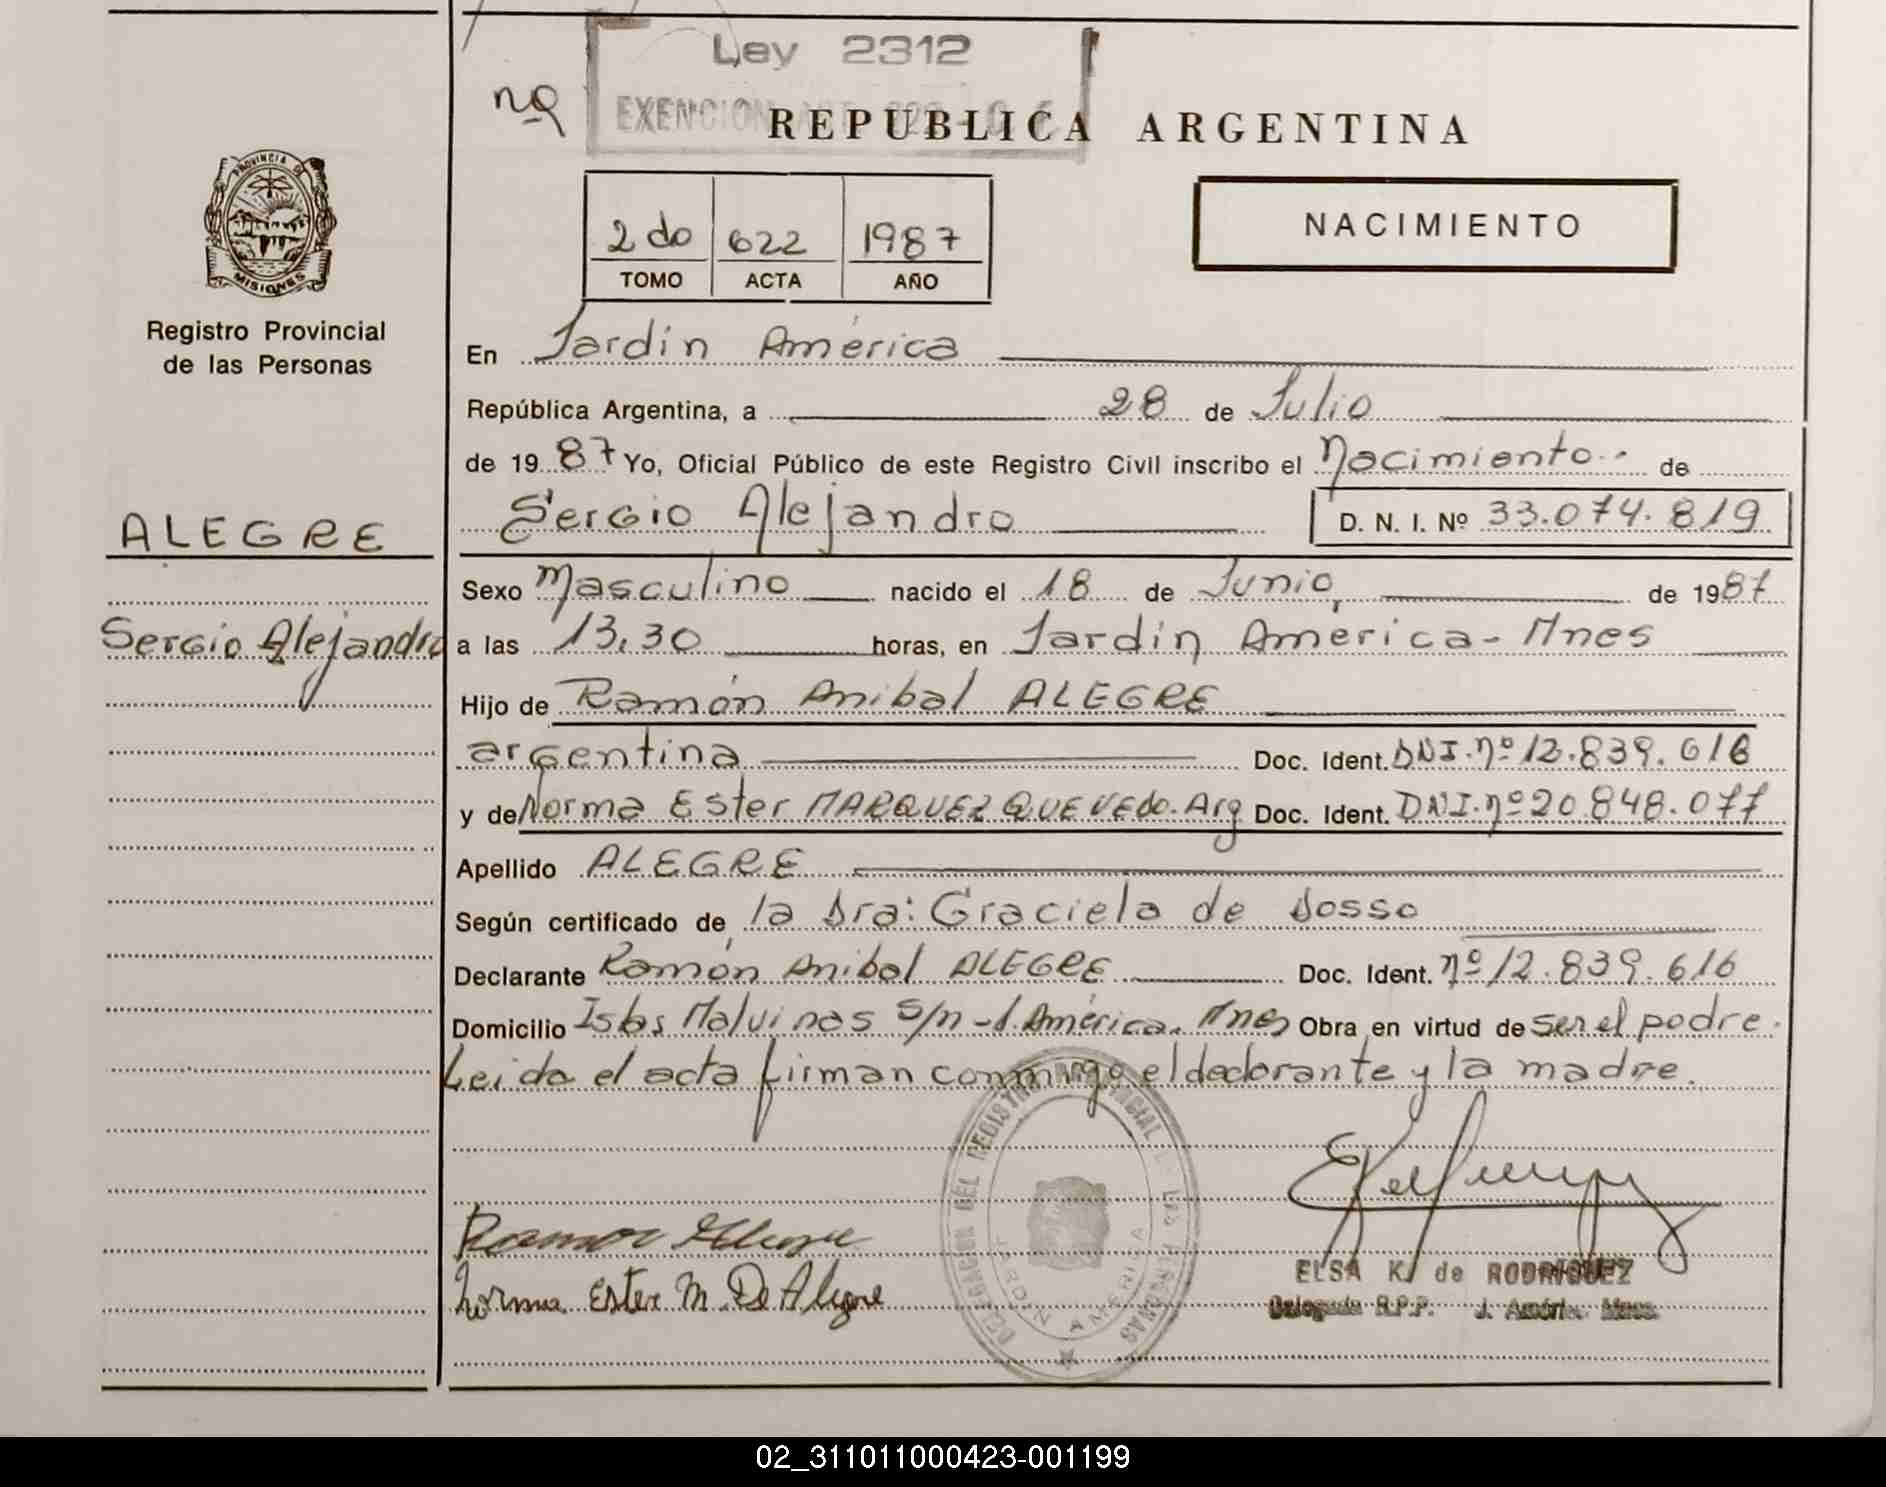 Ley 2312
nº
EXENCION
REPUBLICA ARGENTINA
PROVINCIA DE
MISIONES
Registro Provincial
de las Personas
2 do 622 1987
TOMO ACTA AÑO
NACIMIENTO
En Jardín América
República Argentina, a 28 de Julio
de 1987 Yo, Oficial Público de este Registro Civil inscribo el Nacimiento de
Sergio Alejandro D. N. I. Nº 33.074.819
ALEGRE
Sergio Alejandro
Sexo Masculino nacido el 18 de Junio, de 1987
a las 13,30 horas, en Jardín America - Mnes
Hijo de Ramón Anibal ALEGRE
argentina Doc. Ident. DNI.nº 12.839.616
y de Norma Ester MARQUEZ QUEVEDO. Arg Doc. Ident. DNI.nº 20.848.077
Apellido ALEGRE
Según certificado de la Dra: Graciela de Dosso
Declarante Ramón Anibal ALEGRE Doc. Ident. nº 12.839.616
Domicilio Islas Malvinas s/n - J. América. Mnes Obra en virtud de ser el padre.
Leida el acta firman conmigo el declarante y la madre.
DELEGACION DEL REGISTRO PROVINCIAL DE LAS PERSONAS
JARDIN AMERICA
Ramon Alegre
Norma Ester M. De Alegre
ELSA K. de RODRIGUEZ
Delegada R.P.P. J. América Mnes.
02_311011000423-001199